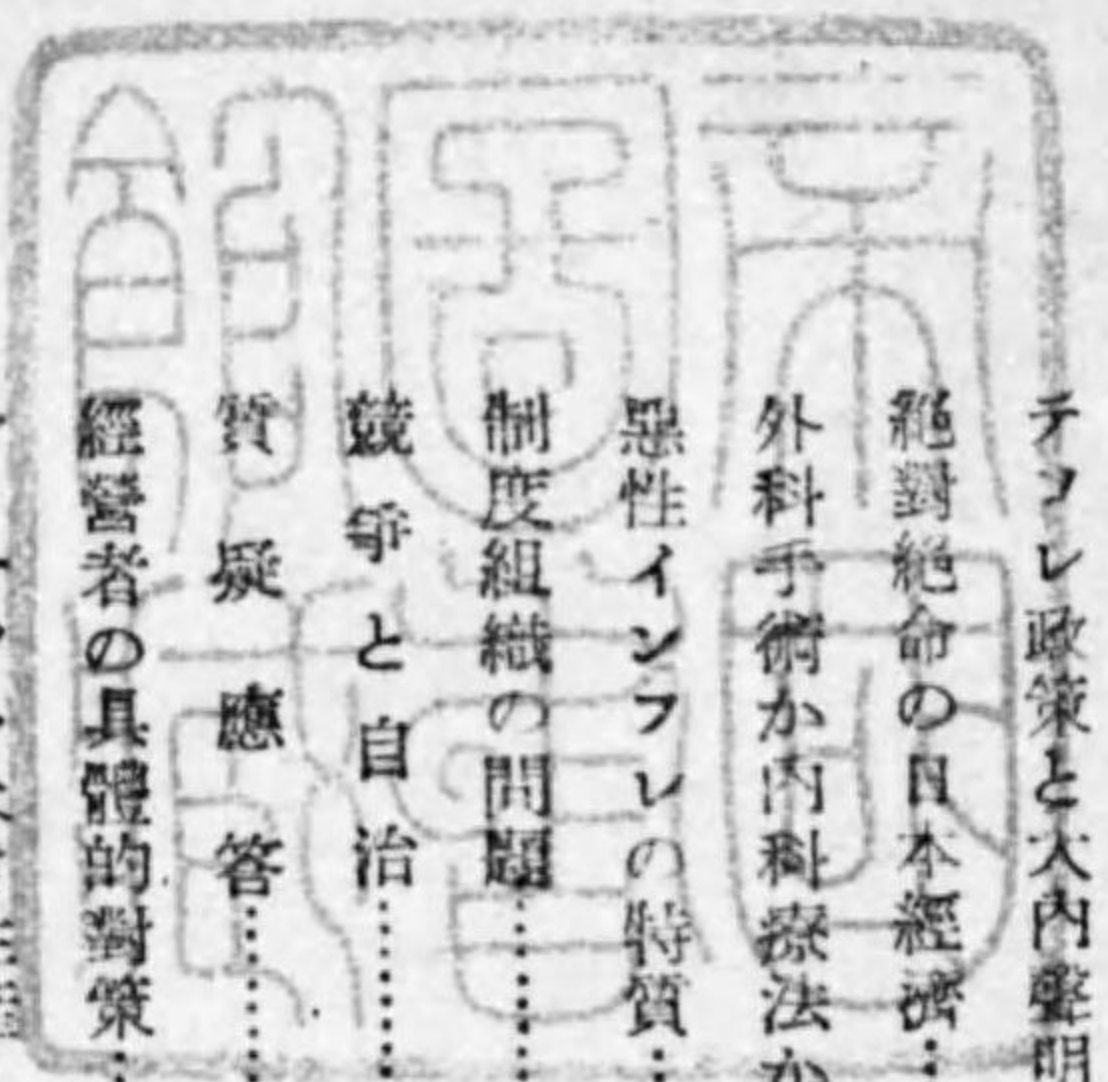 デフレ政策と大内聲明
絕對絕命の日本經濟……
外科手術か內科療法か
惡性インフレの特質……
制度組織の問題……
競爭と自治……
質疑應答……
經營者の具體的對策……